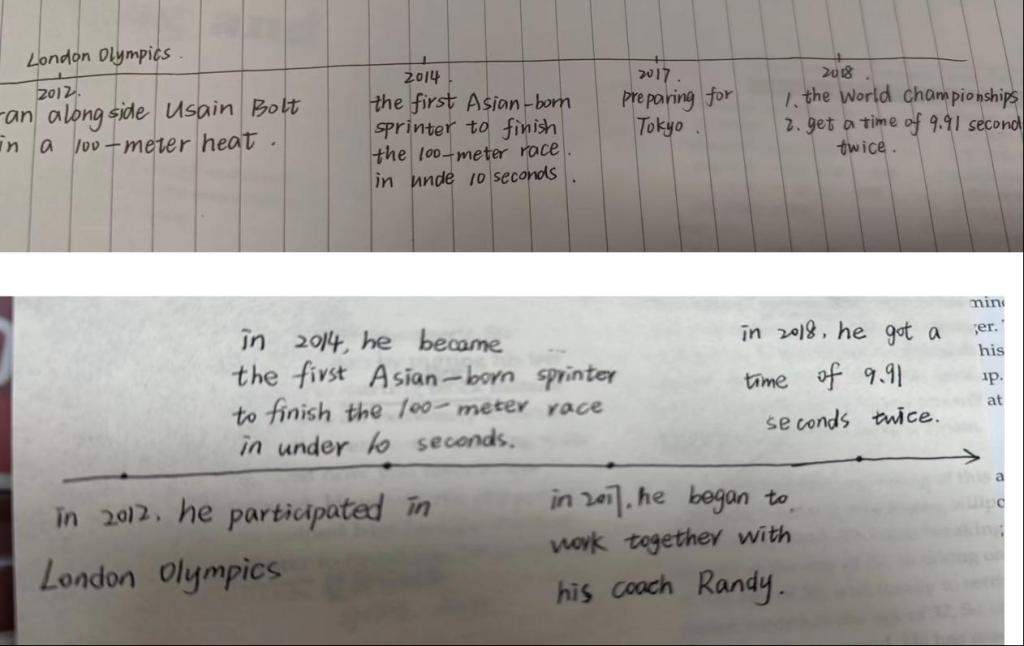 London Olympics.
2012.
ran alongside Usain Bolt
in a 100-meter heat.
2014.
the first Asian-born
sprinter to finish
the 100-meter race
in unde 10 seconds.
2017.
preparing for
Tokyo.
2018.
1. the World championships
2. get a time of 9.91 second
twice.
in 2014, he became
the first Asian-born sprinter
to finish the 100-meter race
in under 10 seconds.
in 2018, he got a
time of 9.91
seconds twice.
in 2012, he participated in
London Olympics
in 2017, he began to
work together with
his coach Randy.
his
at
a